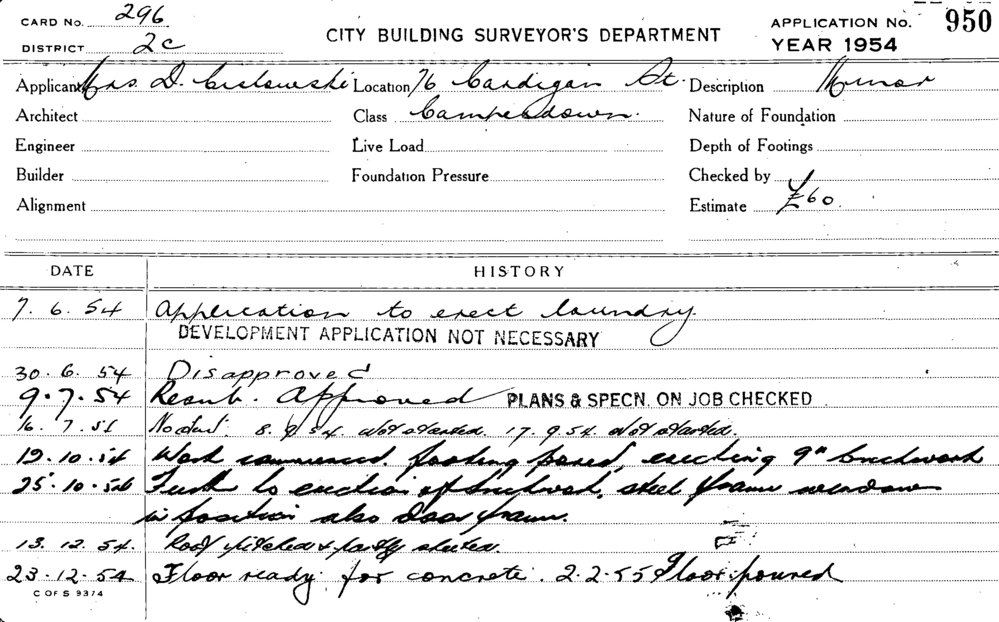 CARD No. 296
DISTRICT 2c
CITY BUILDING SURVEYOR'S DEPARTMENT
APPLICATION No. 950
YEAR 1954
Applicant Mrs. D. Cislowski Location 76 Cardigan St. Description Minor
Architect Class Camperdown. Nature of Foundation
Engineer Live Load Depth of Footings
Builder Foundation Pressure Checked by
Alignment Estimate £60.
DATE HISTORY
7. 6. 54 Application to erect laundry
DEVELOPMENT APPLICATION NOT NECESSARY
30. 6. 54 Disapproved
9. 7. 54 Resub. Approved PLANS & SPECN. ON JOB CHECKED
16. 7. 54 8. 9. 54. Not started. 17. 9. 54. Not started.
19. 10. 54 Work commenced, footing poured, erecting 9" brickwork
25. 10. 54 to erection of brickwork, steel frame window
in position also door frame.
13. 12. 54. Roof pitched & partly sheeted.
23. 12. 54 Floor ready for concrete. 2. 2. 55 Floor poured
C OF S 9374